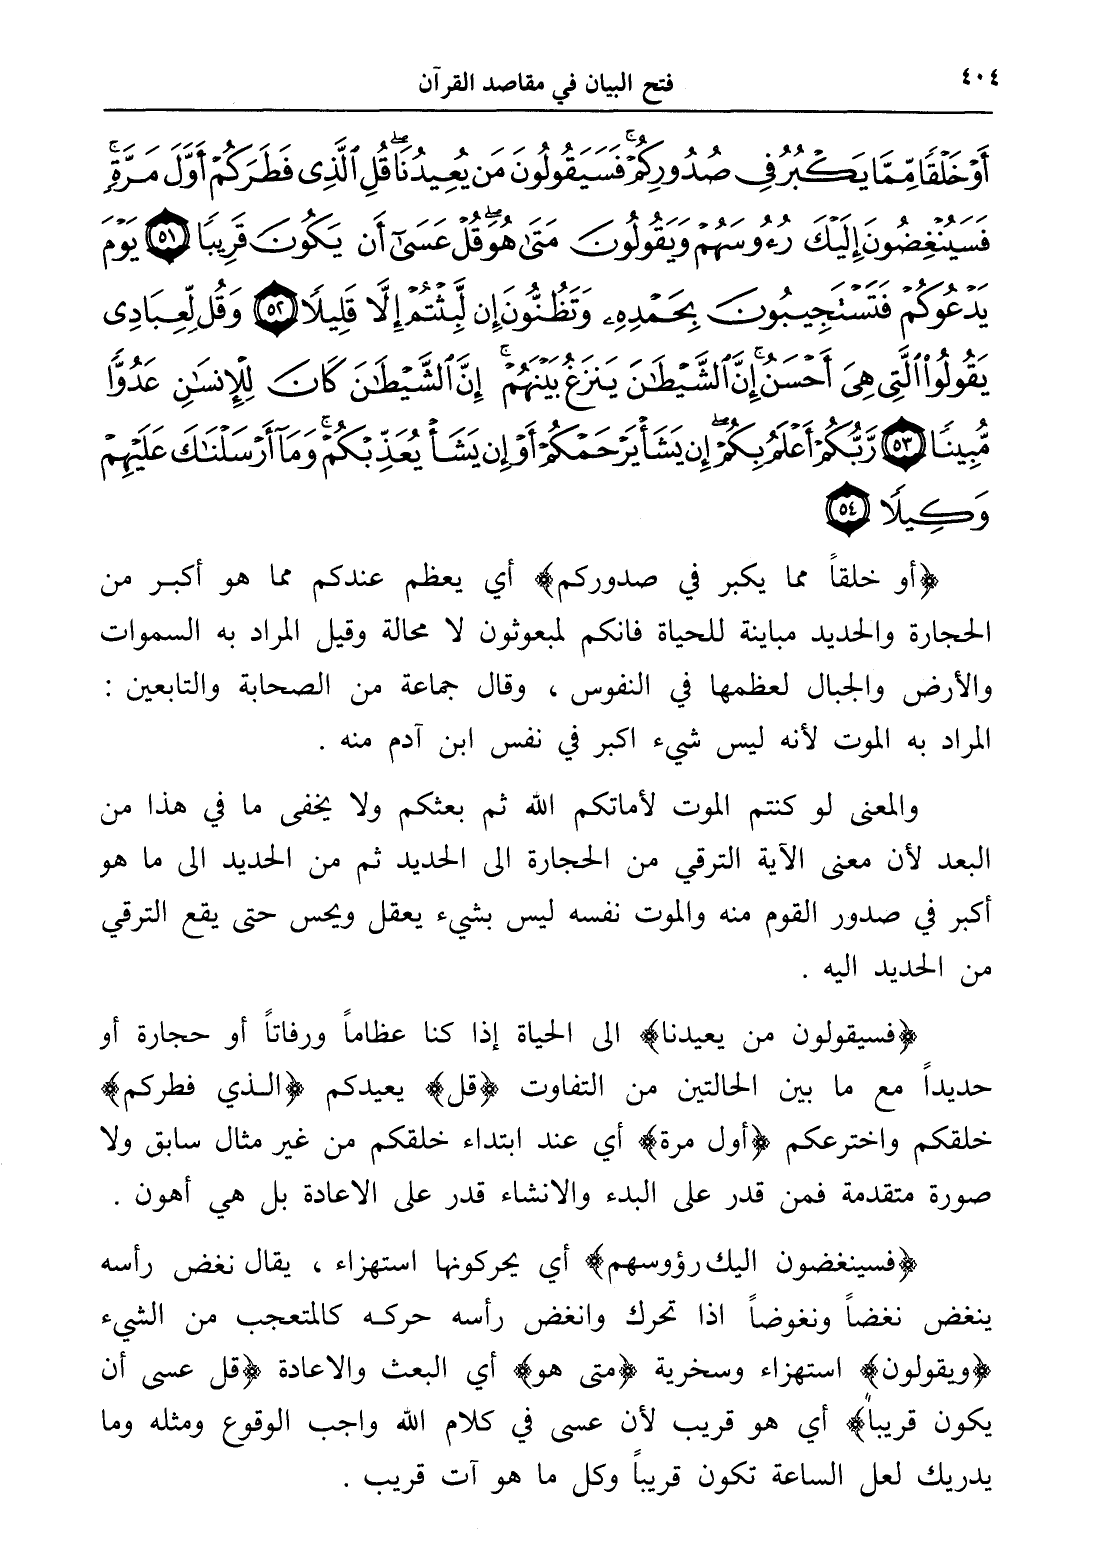 ٤٠٤
فتح البيان في مقاصد القرآن
أَوْ خَلْقًا مِّمَّا يَكْبُرُ فِي صُدُورِكُمْ ۚ فَسَيَقُولُونَ مَن يُعِيدُنَا ۖ قُلِ الَّذِي فَطَرَكُمْ أَوَّلَ مَرَّةٍ ۚ
فَسَيُنْغِضُونَ إِلَيْكَ رُءُوسَهُمْ وَيَقُولُونَ مَتَىٰ هُوَ ۖ قُلْ عَسَىٰ أَن يَكُونَ قَرِيبًا ٥١ يَوْمَ
يَدْعُوكُمْ فَتَسْتَجِيبُونَ بِحَمْدِهِ وَتَظُنُّونَ إِن لَّبِثْتُمْ إِلَّا قَلِيلًا ٥٢ وَقُل لِّعِبَادِي
يَقُولُوا الَّتِي هِيَ أَحْسَنُ ۚ إِنَّ الشَّيْطَٰنَ يَنزَغُ بَيْنَهُمْ ۚ إِنَّ الشَّيْطَٰنَ كَانَ لِلْإِنسَٰنِ عَدُوًّا
مُّبِينًا ٥٣ رَّبُّكُمْ أَعْلَمُ بِكُمْ ۖ إِن يَشَأْ يَرْحَمْكُمْ أَوْ إِن يَشَأْ يُعَذِّبْكُمْ ۚ وَمَا أَرْسَلْنَٰكَ عَلَيْهِمْ
وَكِيلًا ٥٤
﴿أو خلقاً مما يكبر في صدوركم﴾ أي يعظم عندكم مما هو أكبر من
الحجارة والحديد مباينة للحياة فانكم لمبعوثون لا محالة وقيل المراد به السموات
والأرض والجبال لعظمها في النفوس ، وقال جماعة من الصحابة والتابعين :
المراد به الموت لأنه ليس شيء اكبر في نفس ابن آدم منه .
والمعنى لو كنتم الموت لأماتكم الله ثم بعثكم ولا يخفى ما في هذا من
البعد لأن معنى الآية الترقي من الحجارة الى الحديد ثم من الحديد الى ما هو
أكبر في صدور القوم منه والموت نفسه ليس بشيء يعقل ويحس حتى يقع الترقي
من الحديد اليه .
﴿فسيقولون من يعيدنا﴾ الى الحياة إذا كنا عظاماً ورفاتاً أو حجارة أو
حديداً مع ما بين الحالتين من التفاوت ﴿قل﴾ يعيدكم ﴿الذي فطركم﴾
خلقكم واخترعكم ﴿أول مرة﴾ أي عند ابتداء خلقكم من غير مثال سابق ولا
صورة متقدمة فمن قدر على البدء والانشاء قدر على الاعادة بل هي أهون .
﴿فسينغضون اليك رؤوسهم﴾ أي يحركونها استهزاء ، يقال نغض رأسه
ينغض نغضاً ونغوضاً اذا تحرك وانغض رأسه حركه كالمتعجب من الشيء
﴿ويقولون﴾ استهزاء وسخرية ﴿متى هو﴾ أي البعث والاعادة ﴿قل عسى أن
يكون قريباً﴾ أي هو قريب لأن عسى في كلام الله واجب الوقوع ومثله وما
يدريك لعل الساعة تكون قريباً وكل ما هو آت قريب .